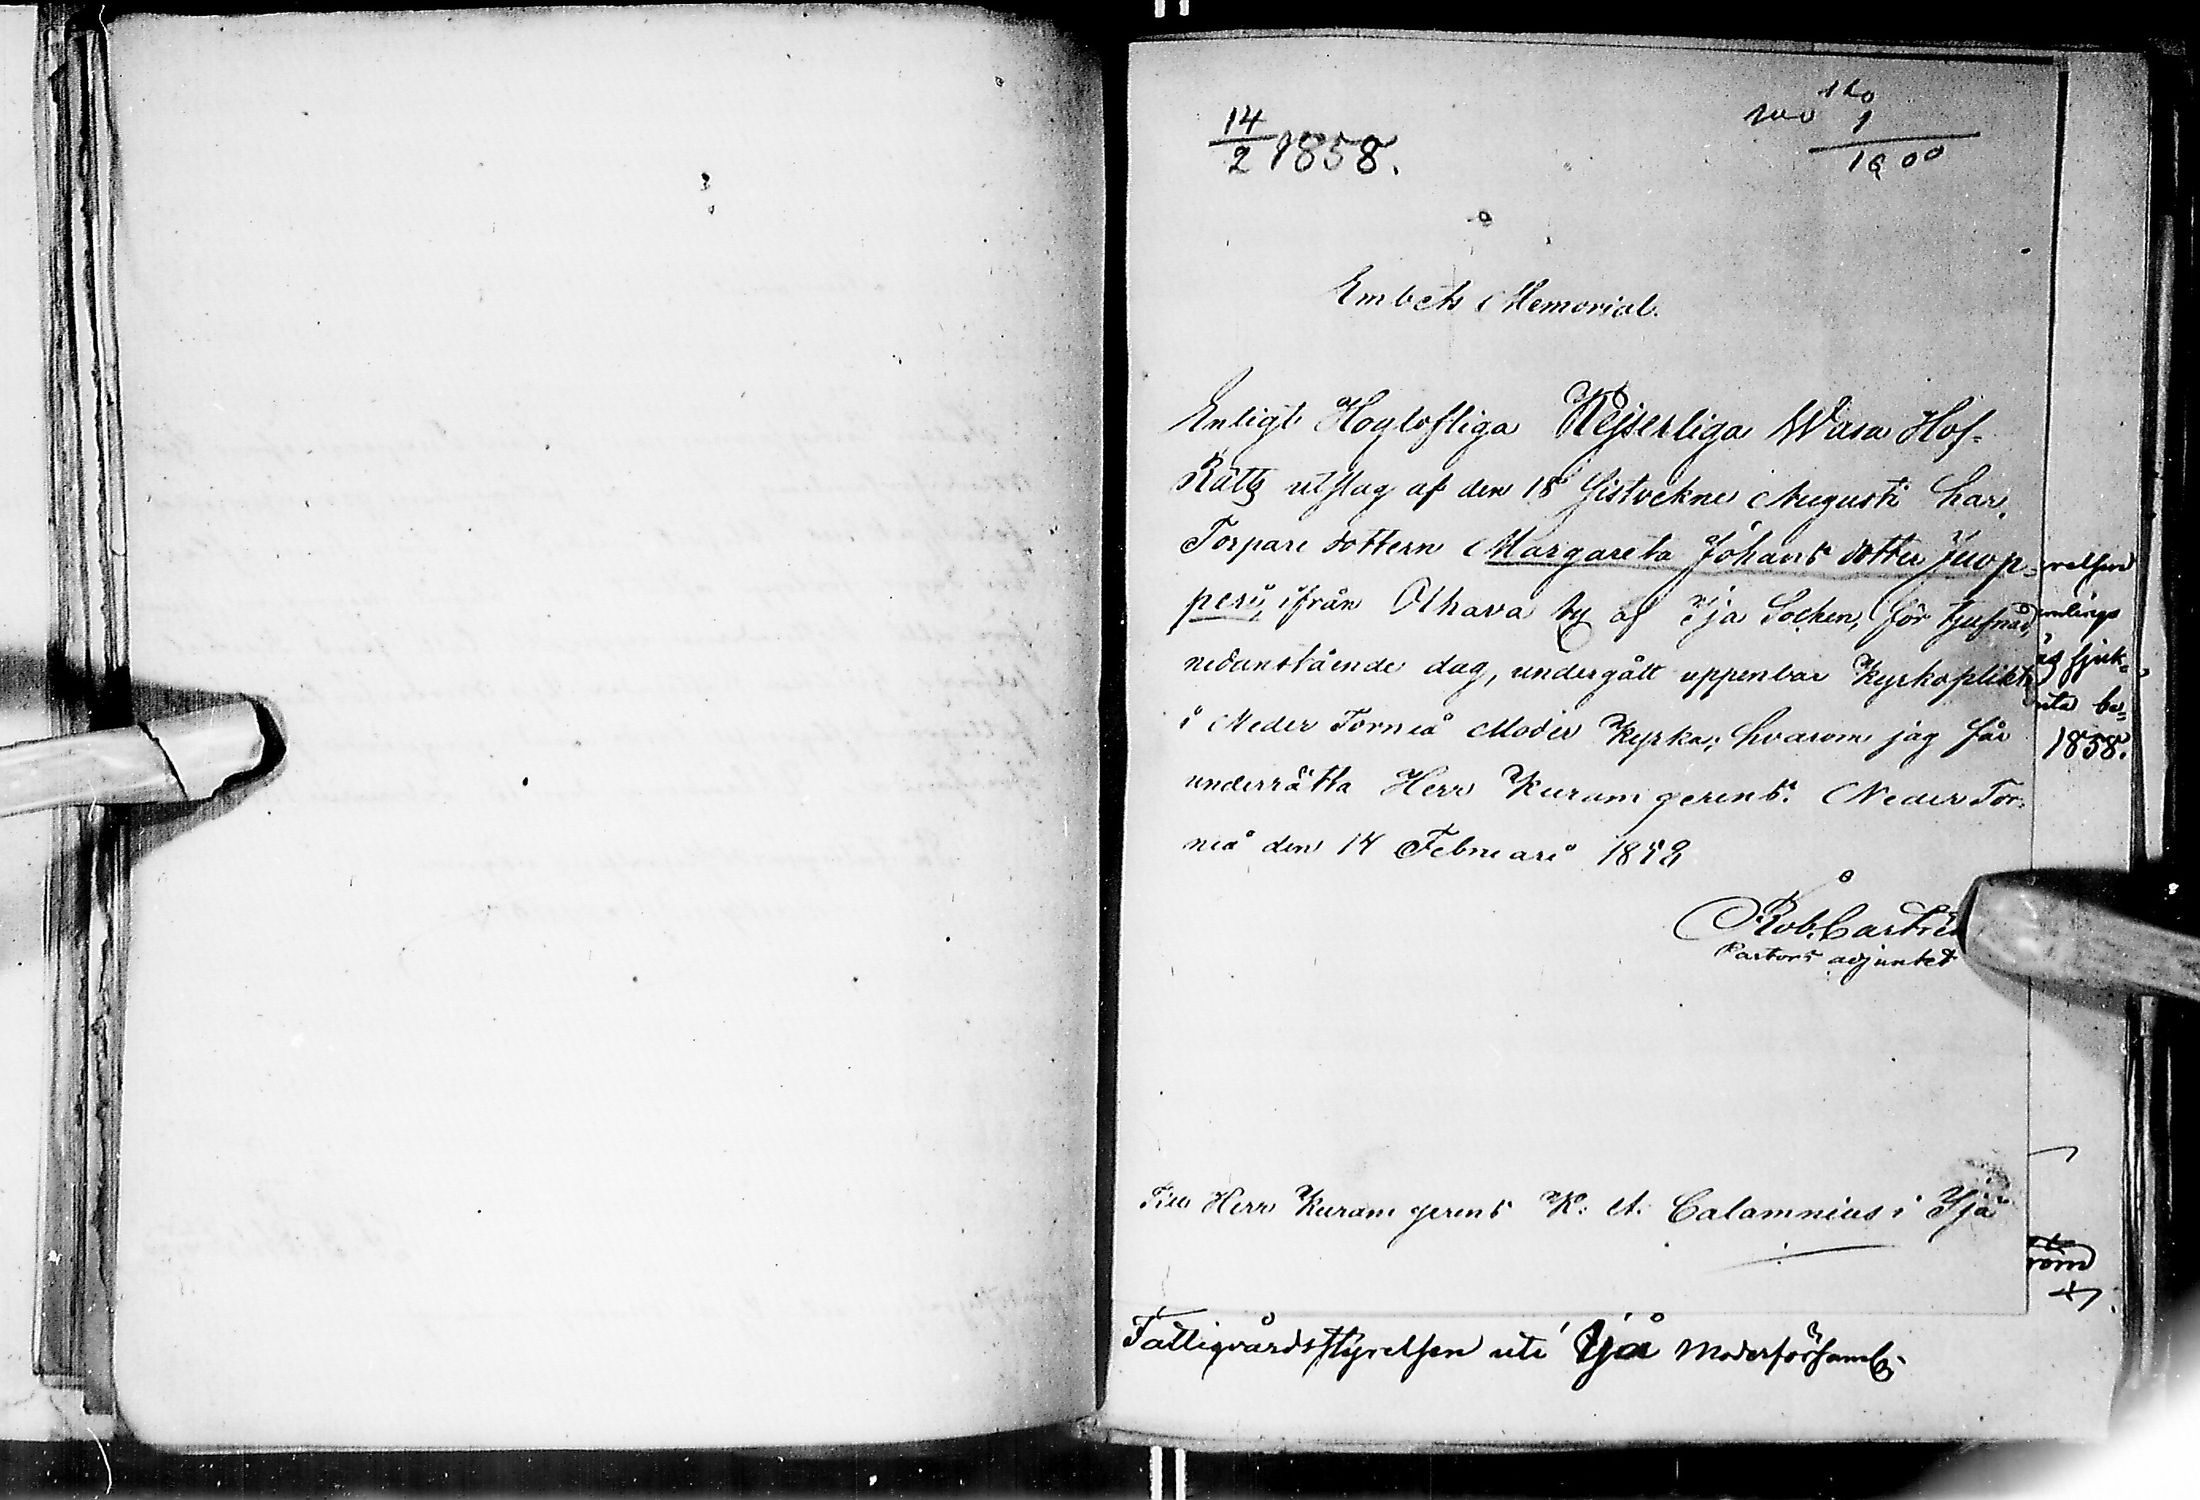 14/2 1858.
1
1600
Embets Memorial.
Enligt Höglofliga Kejserliga Wasa Hof-
Rätts utslag af den 18 sistvekne Augusti har,
Torpare dottern Margareta Johans dotter Juop-
peri, ifrån Olhava by af Ijo Socken, för tjufnad,
nedanstående dag, undergått uppenbar Kyrkoplikt
i Neder Torneå Moder Kyrka; hvarom jag får
underrätta Herr Kuram gerens. Neder Tor-
neå den 14 Februari 1858
Rob. Castrén
Pastors adjunkt
Till Herr Kuram gerens K. A. Calamnius i Ijo
Fattigvårdsstyrelsen uti Ijo Moderförsaml.
relsen
sjuk-
be-
1858.